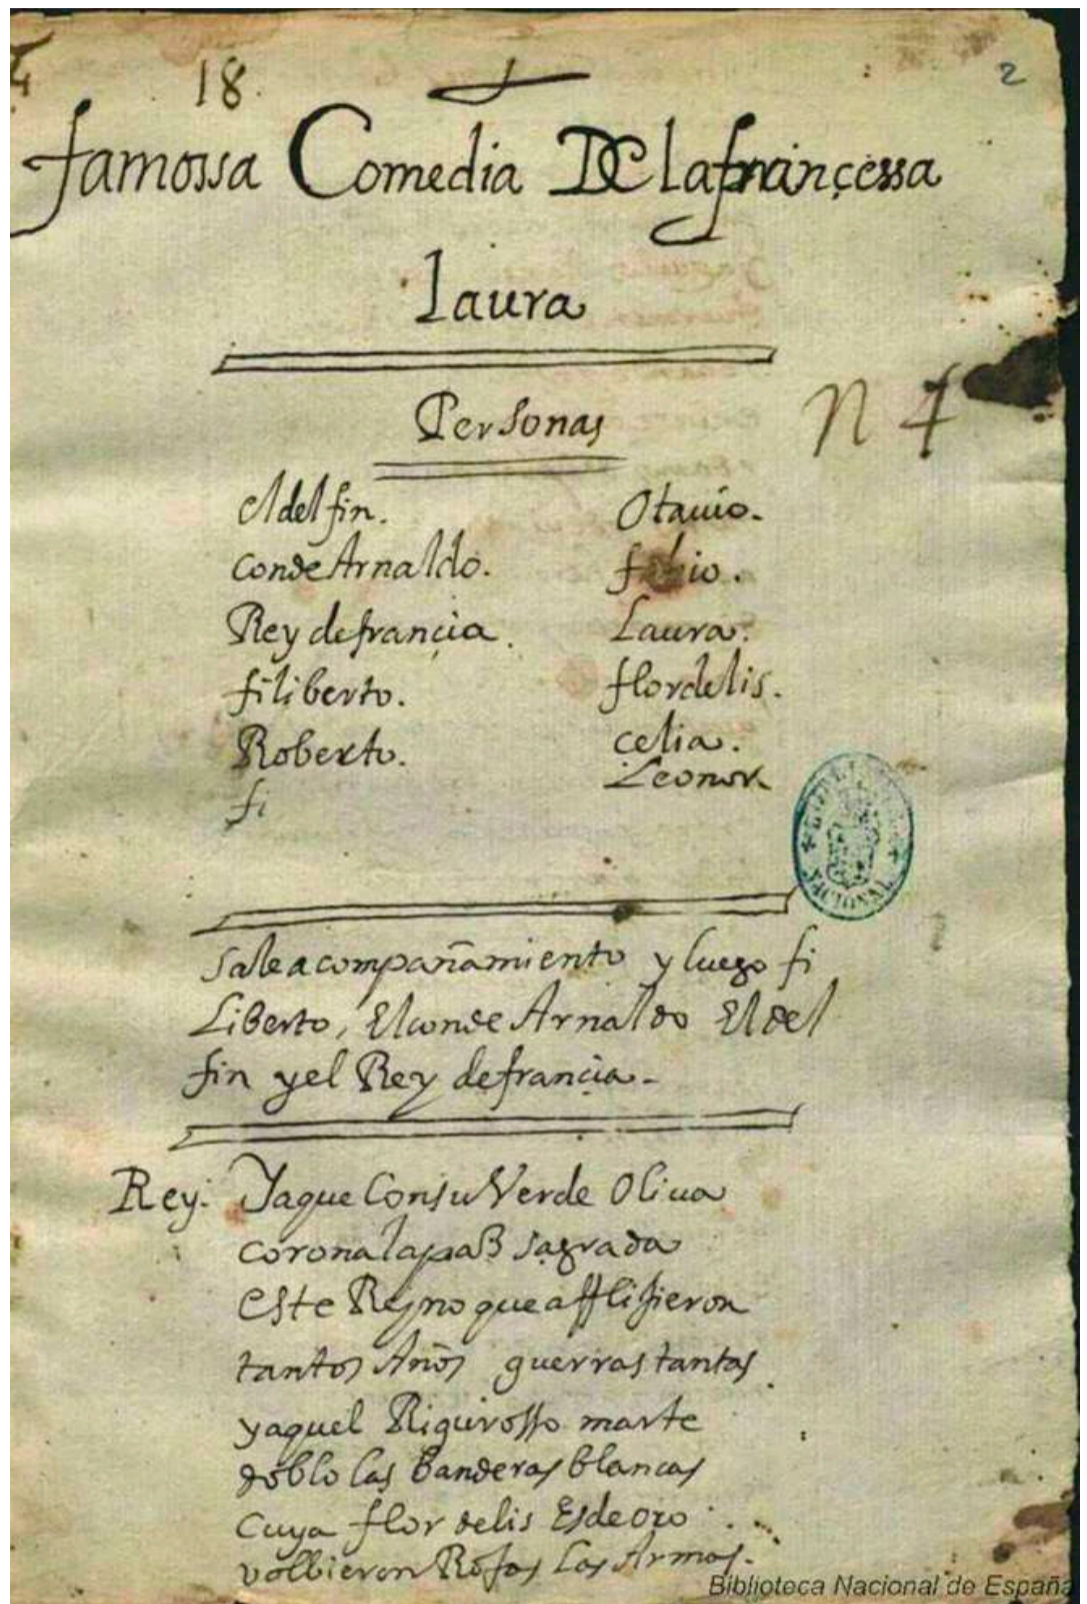 18.
2
famossa Comedia De la françessa
Laura
Personas
N 4
el delfin.
conde Arnaldo.
Rey de françia.
filiberto.
Roberto.
fi
Otauio.
fabio.
Laura.
flordelis.
celia.
Leonor
NACIONAL
sale acompañamiento y luego fi
Liberto, El conde Arnaldo El del
fin y el Rey de françia.
Rey. Ya que Con su Verde Oliua
corona la paß sagrada
este Reyno que afflijieron
tantos Años guerras tantas
y aquel Rigurosso marte
doblo las banderas blancas
Cuya flor delis Es de oro
volbieron Rojas las Armas.
Biblioteca Nacional de España